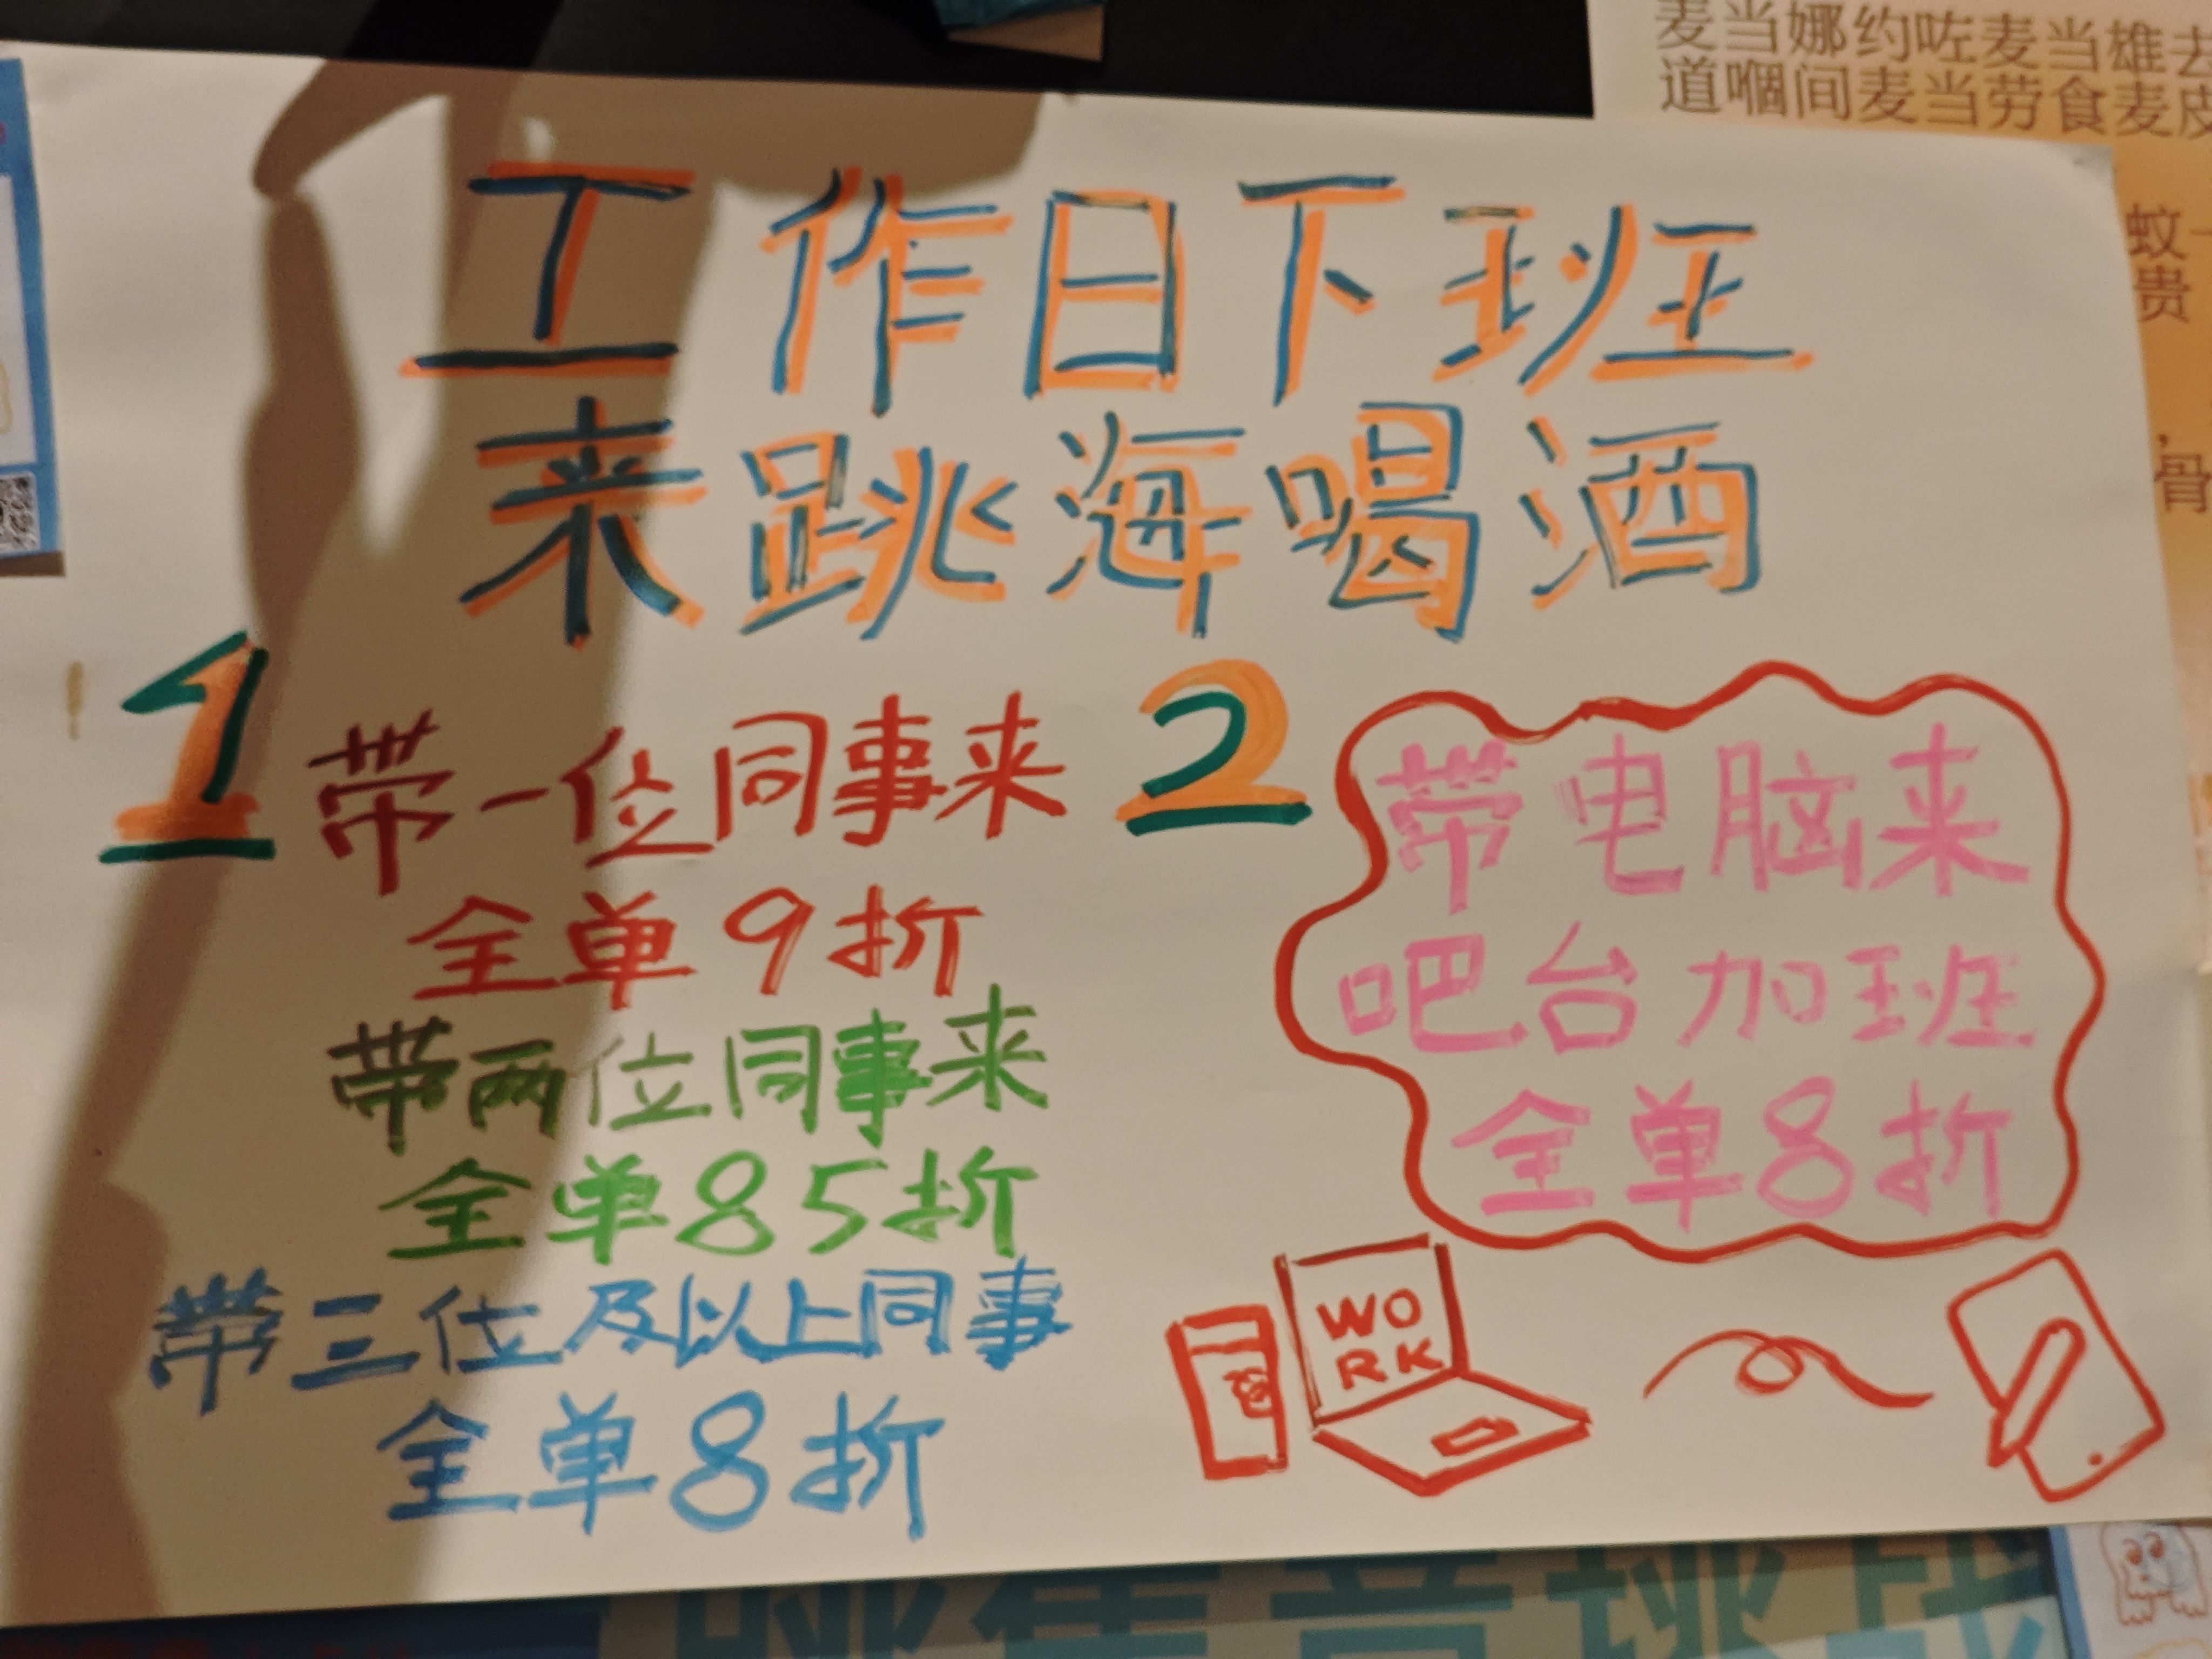 麦当娜约咗麦当雄去
道嗰间麦当劳食麦皮
蚊一
贵
,
骨
工作日下班
来跳海喝酒
1
带一位同事来
全单9折
带两位同事来
全单85折
带三位及以上同事
全单8折
2
带电脑来
吧台加班
全单8折
WO
RK